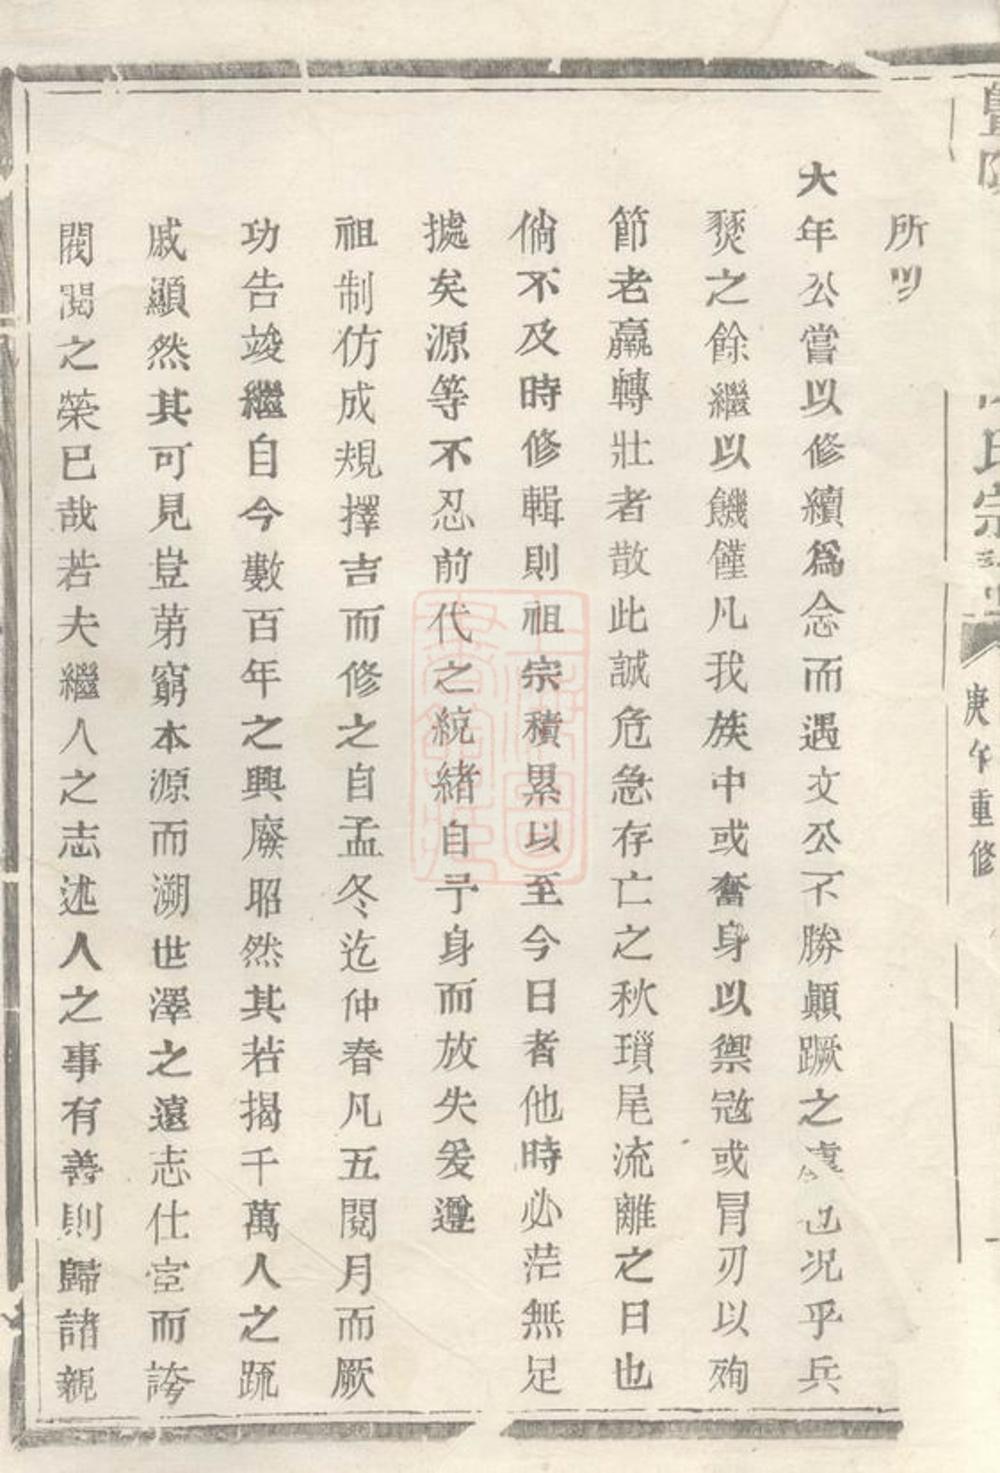 暨陽
氏宗譜
庚午重修
所
大年公嘗以修續爲念而遇文公不勝顛蹶之虞也况乎兵
燹之餘繼以饑饉凡我族中或奮身以禦寇或冒刃以殉
節老羸轉壯者散此誠危急存亡之秋瑣尾流離之日也
倘不及時修輯則祖宗積累以至今日者他時必茫無足
據矣源等不忍前代之統緒自予身而放失爰遵
祖制仿成規擇吉而修之自孟冬迄仲春凡五閱月而厥
功告竣繼自今數百年之興廢昭然其若揭千萬人之䟽
戚顯然其可見豈苐窮本源而溯世澤之遠志仕宦而誇
閥閱之榮已哉若夫繼人之志述人之事有善則歸諸親